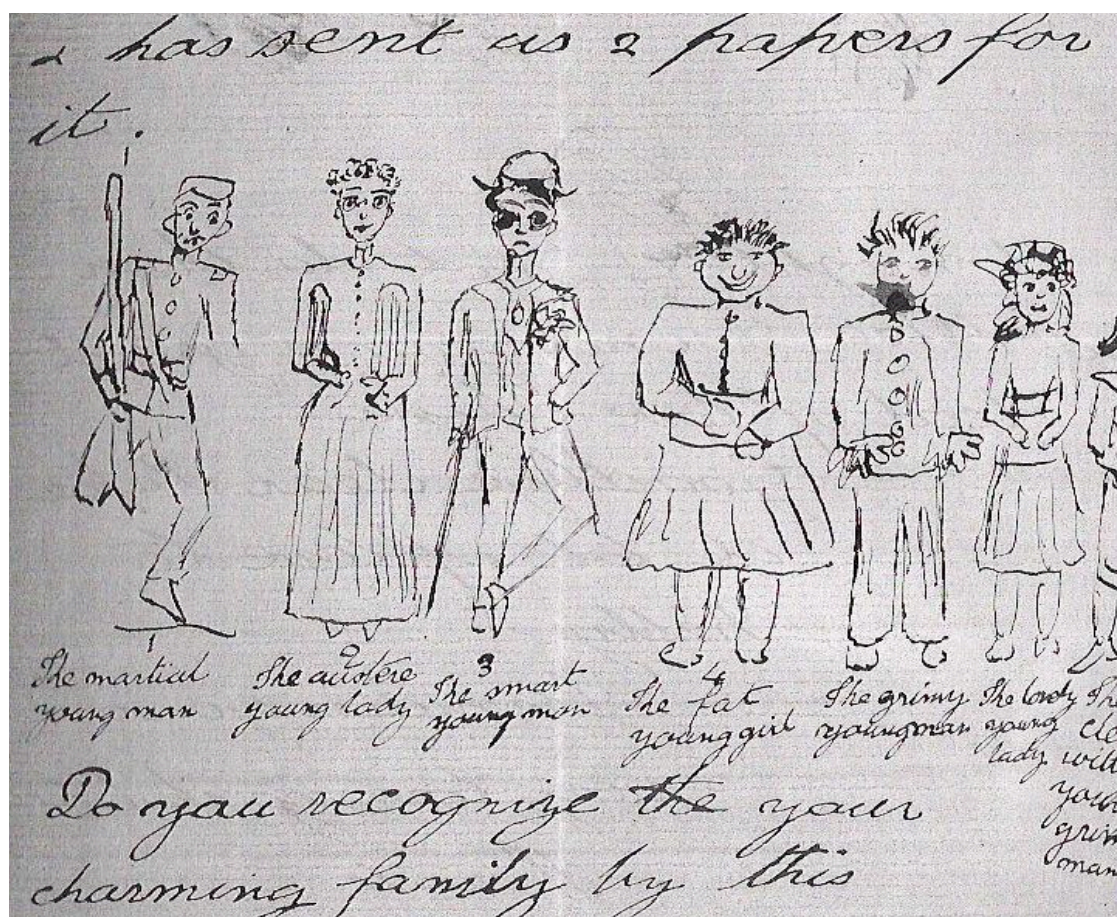 & has sent us 2 papers for
it.
1
The martial
young man
2
The austere
young lady
3
The smart
young man
4
The fat
young girl
The grimy
young man
The lovely
young
lady
Th
cle
will
you
grim
man
Do you recognize the your
charming family by this